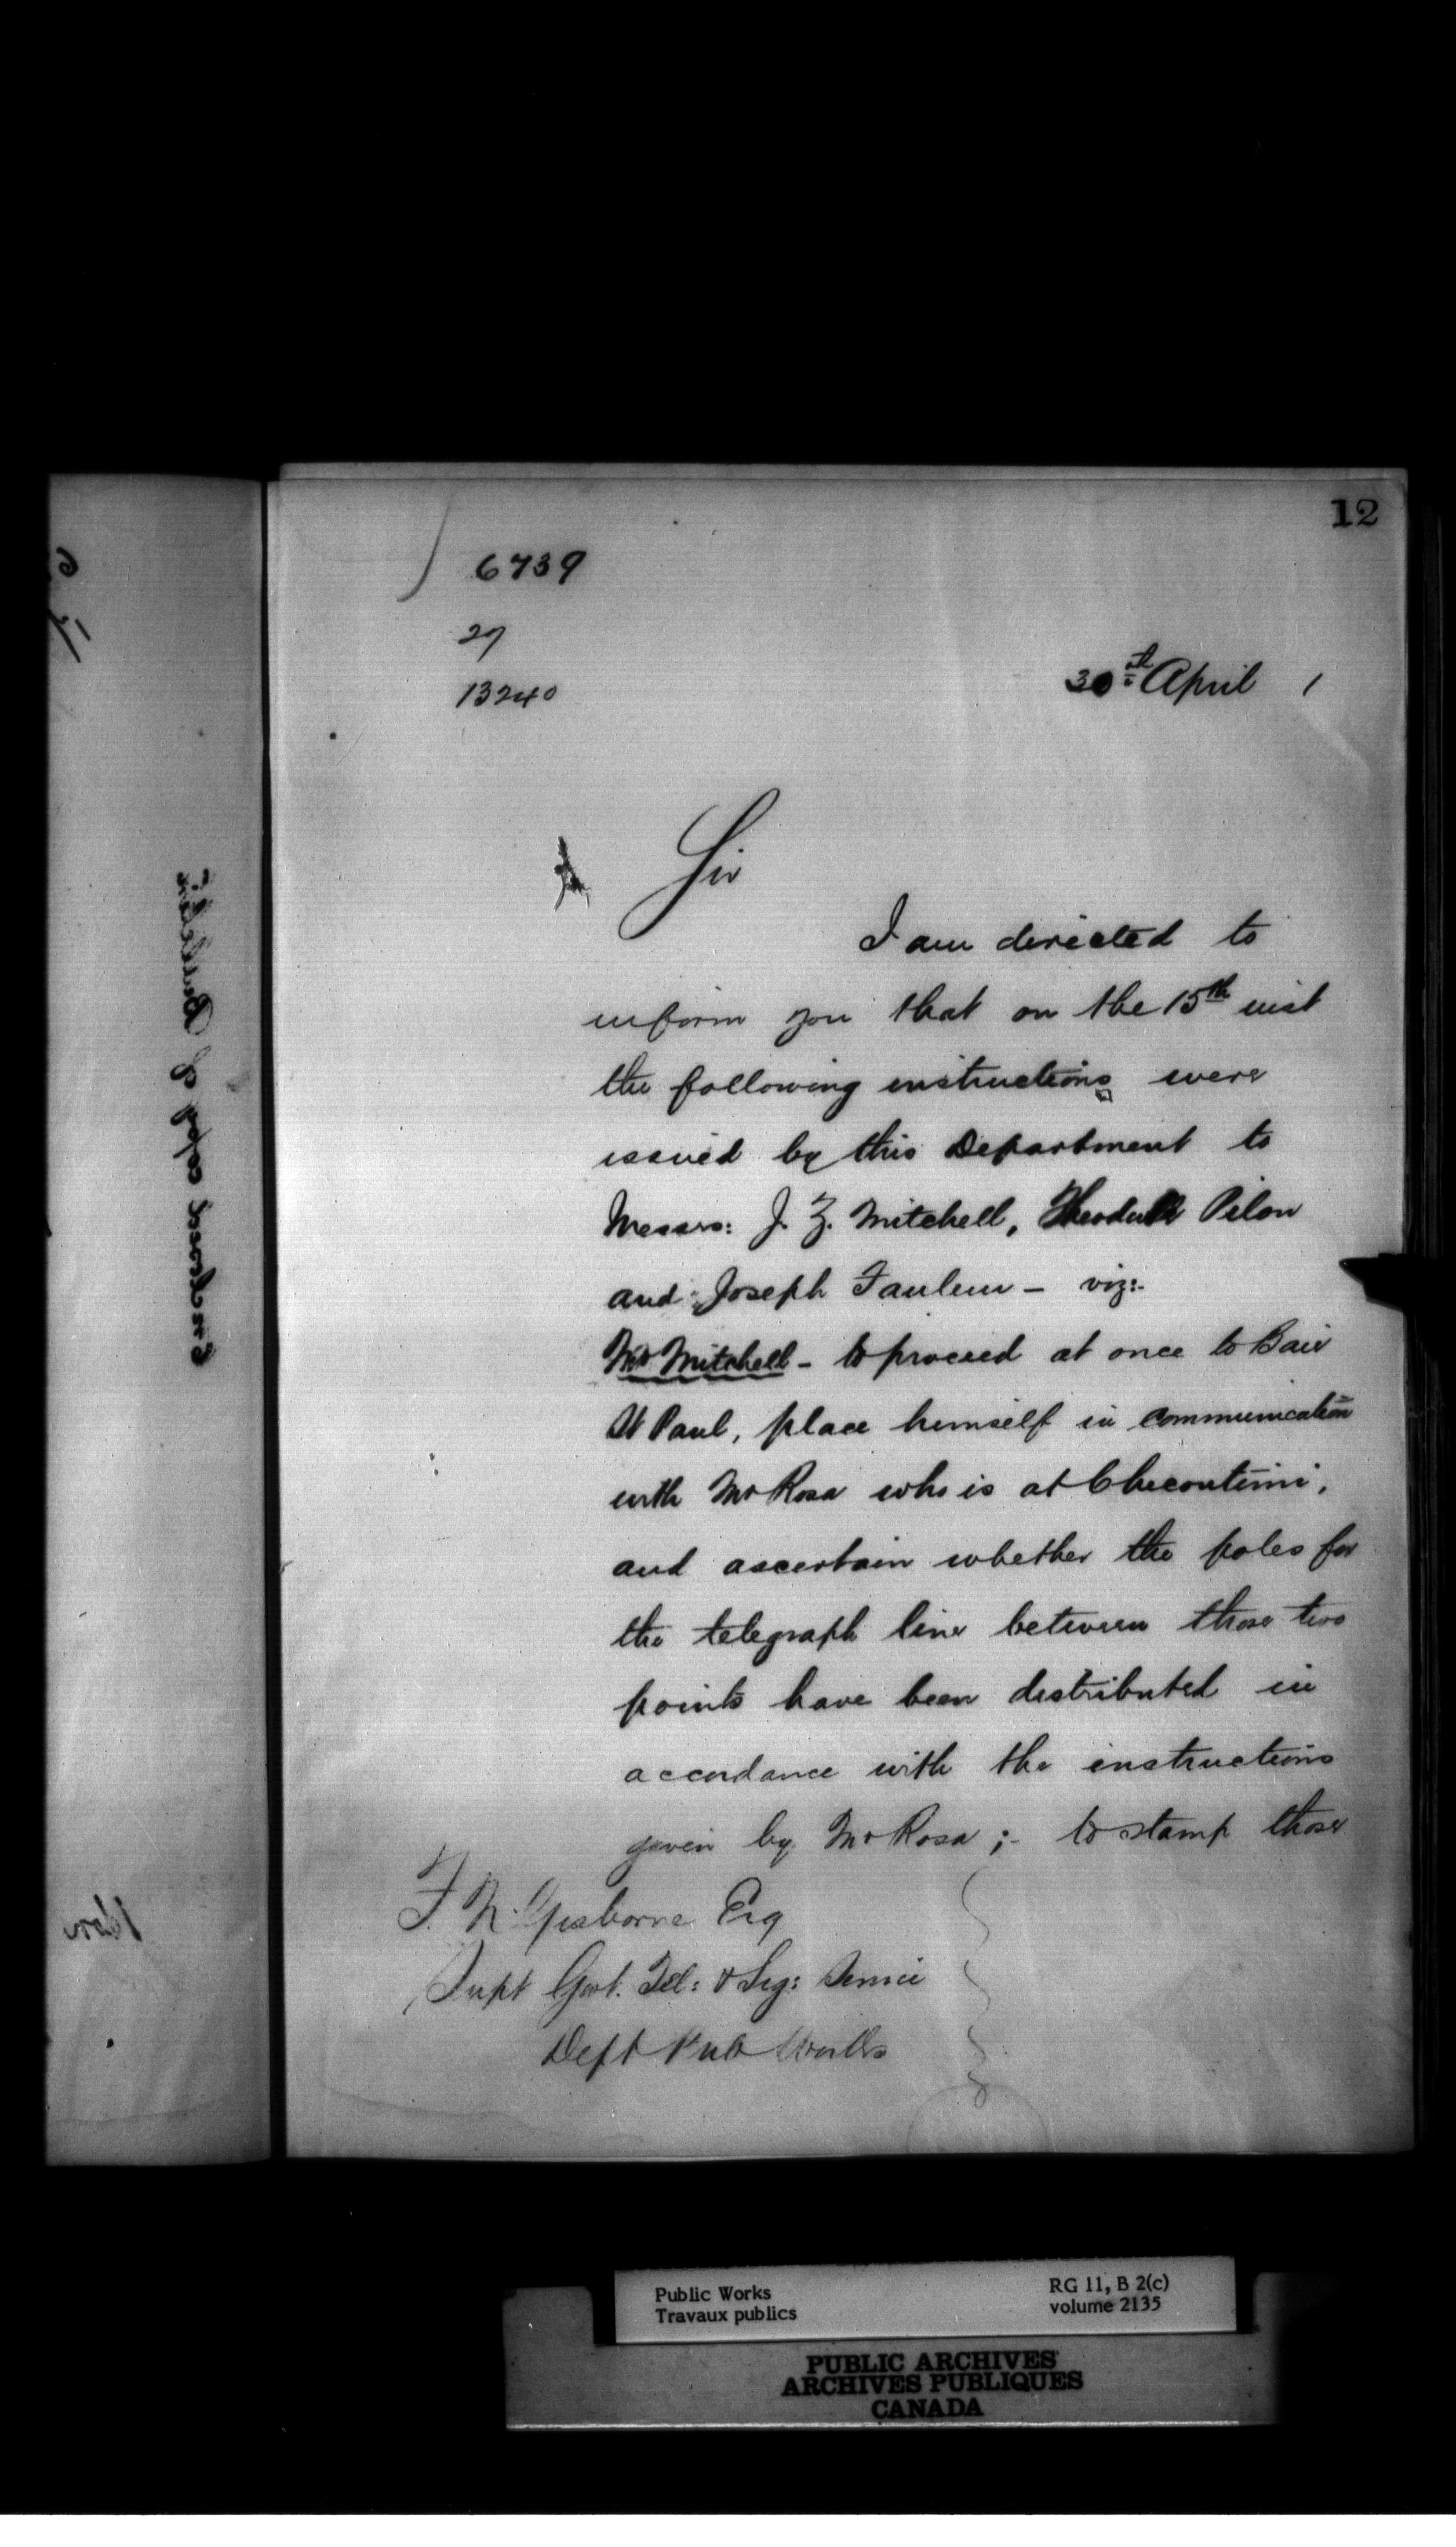 12
6739
27
13240
30th April 1
Sir
I am directed to
inform you that on the 15th inst
the following instructions were
issued by this Department to
Messrs: J. Z. Mitchell, Theodule Pilon
and Joseph Taulem — viz:-
Mr Mitchell - to proceed at once to Baie
St Paul, place himself in communication
with Mr Rosa who is at Chicoutimi,
and ascertain whether the poles for
the telegraph line between those two
points have been distributed in
accordance with the instructions
given by Mr Rosa ;- to stamp those
F. N. Gisborne Esq
Supt Govt. Tel: & Sig: Service
Dept Pub Works
Public Works
Travaux publics
RG 11, B 2(c)
volume 2135
PUBLIC ARCHIVES
ARCHIVES PUBLIQUES
CANADA